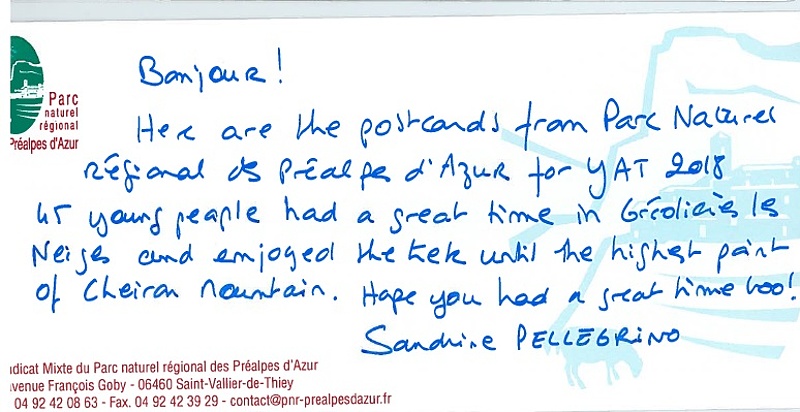 Parc
naturel
régional
Préalpes d'Azur
Bonjour!
Here are the postcards from Parc Naturel
Régional des Préalpes d'Azur for YAT 2018
45 young people had a great time in Gréolières les
Neiges and enjoyed the trek until the highest point
of Cheiron Mountain. Hope you had a great time too!
Sandrine PELLEGRINO
ndicat Mixte du Parc naturel régional des Préalpes d'Azur
avenue François Goby - 06460 Saint-Vallier-de-Thiey
04 92 42 08 63 - Fax. 04 92 42 39 29 - contact@pnr-prealpesdazur.fr